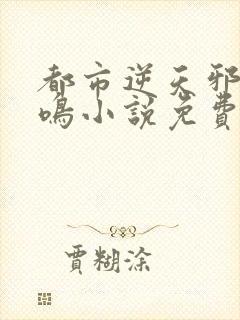 都市逆天邪
鳴小說免費
賈糊涂